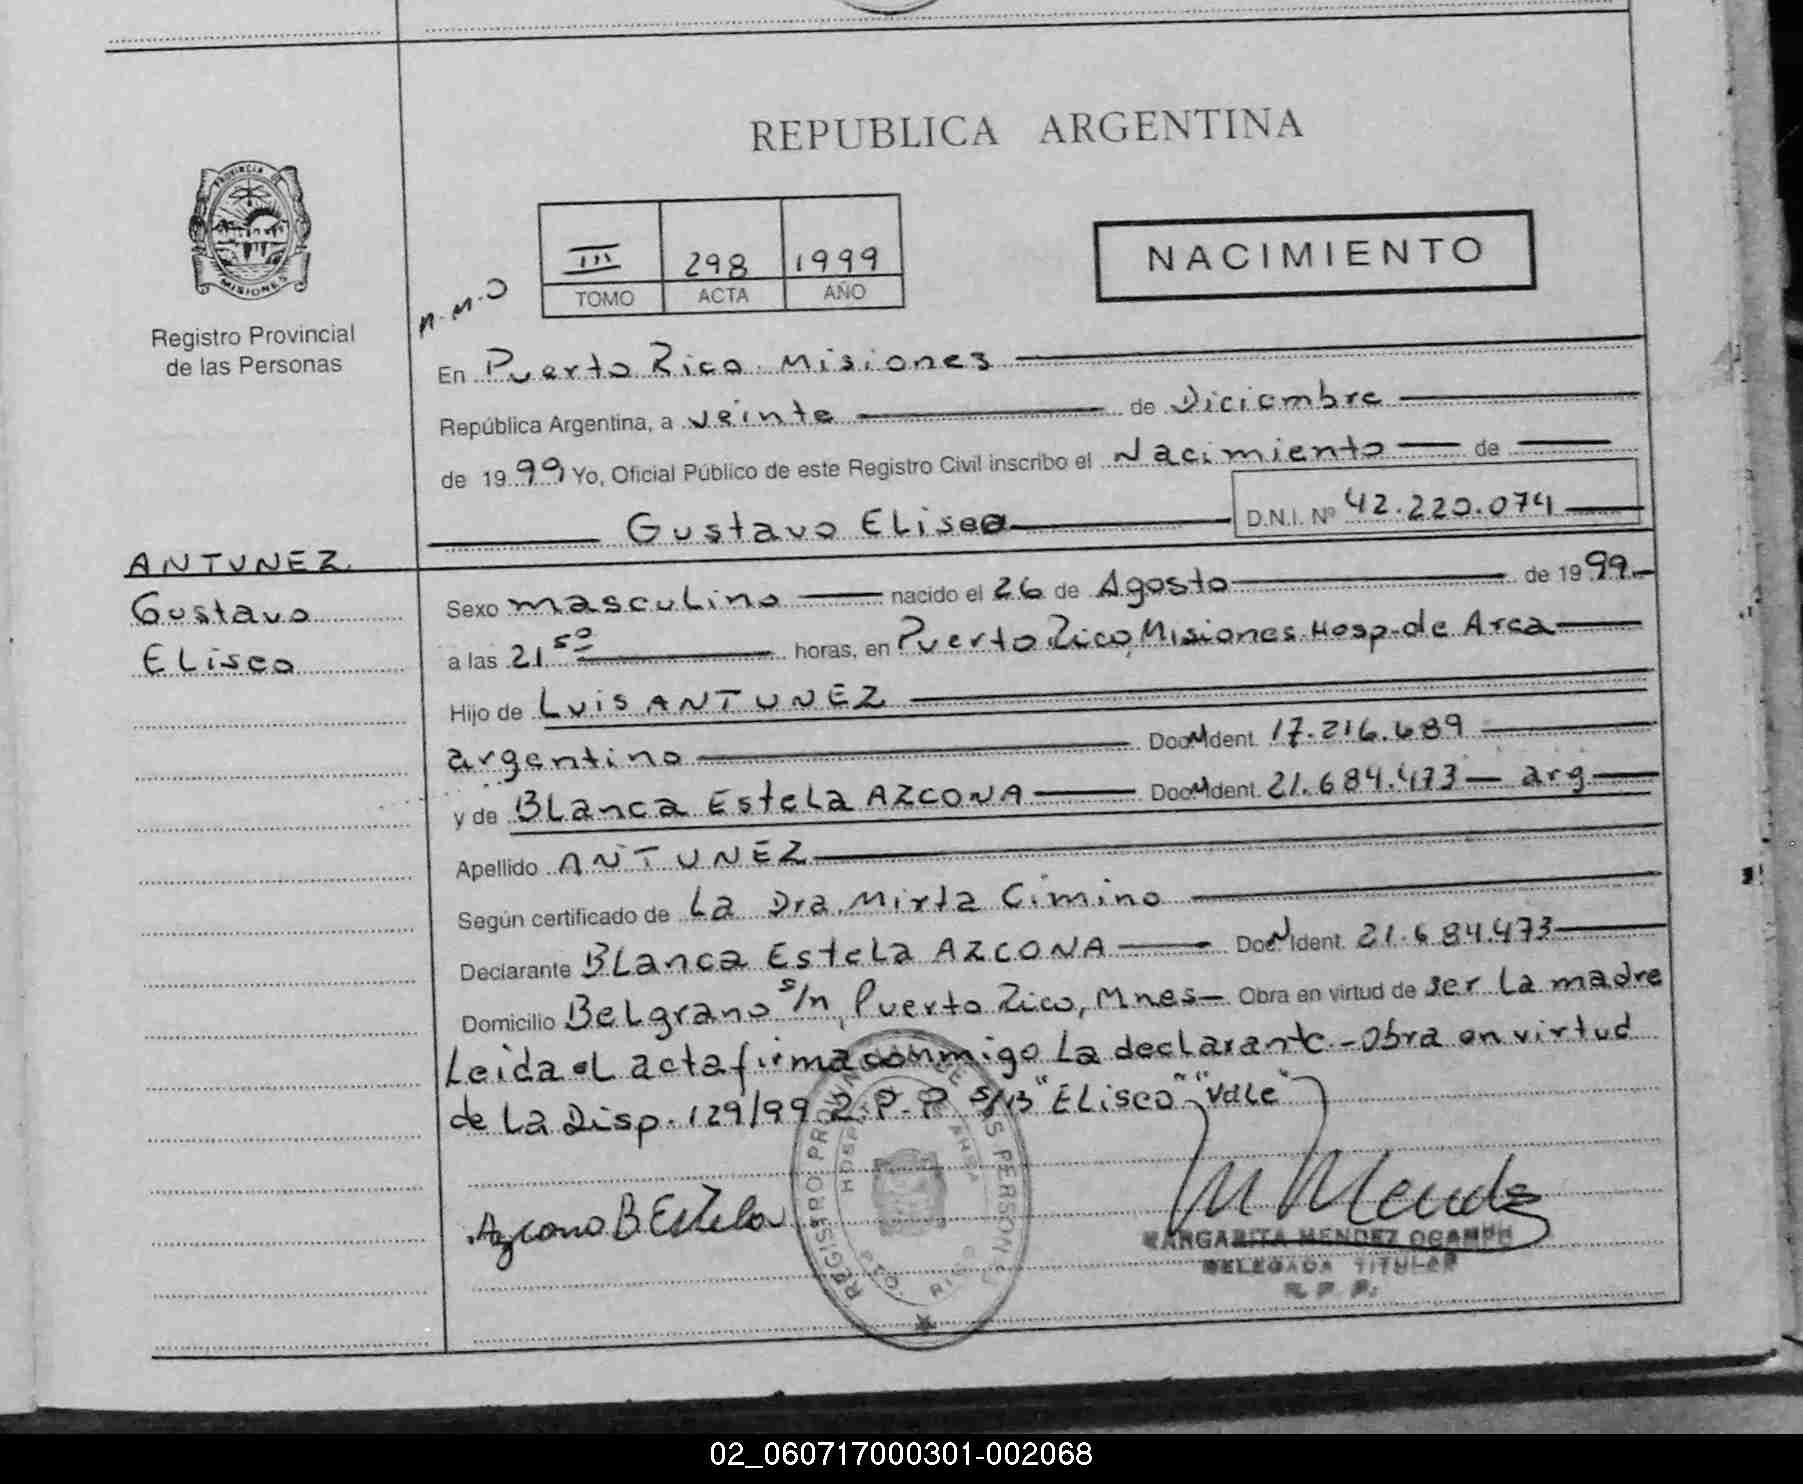 REPUBLICA ARGENTINA
PROVINCIA DE
MISIONES
Registro Provincial
de las Personas
III 298 1999
TOMO ACTA AÑO
NACIMIENTO
En Puerto Rico. Misiones
República Argentina, a veinte de Diciembre
de 1999 Yo, Oficial Público de este Registro Civil inscribo el Nacimiento de
Gustavo Eliseo D.N.I. Nº 42.220.074
ANTUNEZ
Gustavo
Eliseo
Sexo masculino nacido el 26 de Agosto de 1999.-
a las 21 50 horas, en Puerto Rico, Misiones Hosp. de Area
Hijo de Luis ANTUNEZ
argentino Doc. Ident. 17.216.689
y de Blanca Estela AZCONA Doc. Ident. 21.684.473 - arg
Apellido ANTUNEZ
Según certificado de La Dra. Mirta Cimino
Declarante Blanca Estela AZCONA Doc. Ident. 21.684.473
Domicilio Belgrano s/n, Puerto Rico, Mnes - Obra en virtud de ser la madre
Leida el acta firma conmigo la declarante.- Obra en virtud
de la Disp. 129/99 R.P.P S/B "Eliseo" "Vale"
REGISTRO PROVINCIAL DE LAS PERSONAS
Azcona B. Estela
M Mendez
MARGARITA MENDEZ OCAMPO
DELEGADA TITULAR
R. P. P.
02_060717000301-002068